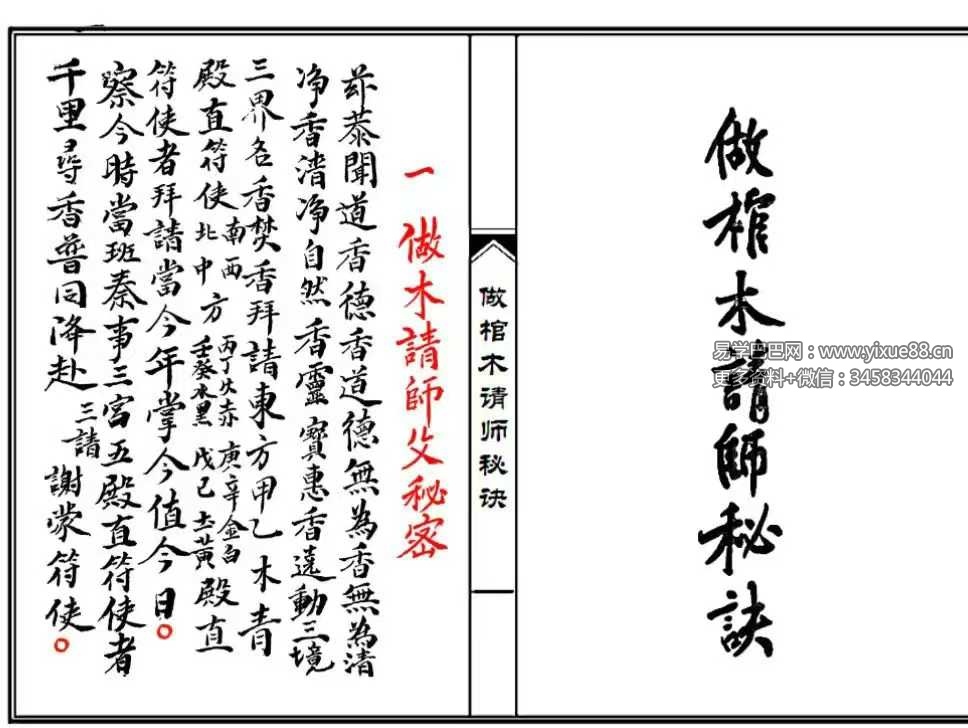 做棺木請師秘訣
易学巴巴网：www.yixue88.cn
更多资料+微信：3458344044
做棺木请师秘诀
一 做木請師父秘密
恭聞道香德香道德無為香無為清
净香清净自然香靈寶惠香遶動三境
三界名香焚香拜請東方甲乙木青
殿直符使南西北中方丙丁火赤庚辛金白壬癸水黑戊己土黄殿直
符使者拜請當今年掌今值今日○
察今時當班奏事三宮五殿直符使者
千里尋香普同降赴三請謝蒙符使○